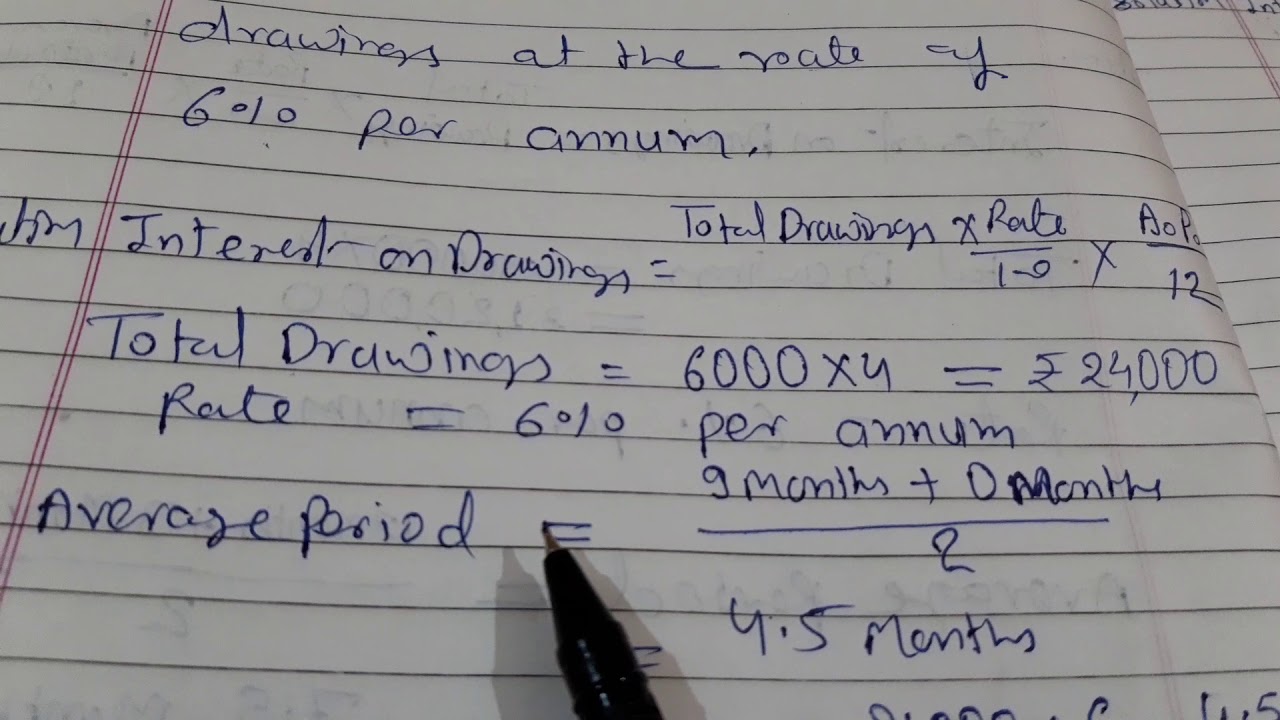 drawings at the rate of
6% per annum.
Interest on Drawings = Total Drawings × Rate/100 × A.P./12
Total Drawings = 6000 × 4 = ₹ 24,000
Rate = 6% per annum
Average Period = 9 Months + 0 Months
2
= 4.5 Months